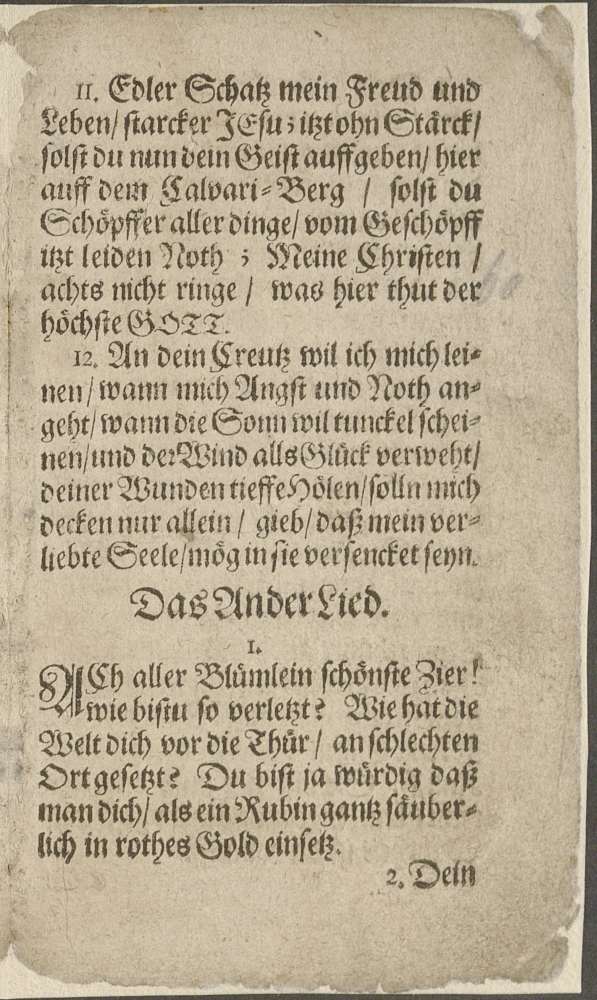 11. Edler Schatz mein Freud und
Leben/ starcker JEsu; itzt ohn Stärck/
solst du nun dein Geist auffgeben/ hier
auff dem Calvari-Berg / solst du
Schöpffer aller dinge/ vom Geschöpff
itzt leiden Noth ; Meine Christen /
achts nicht ringe / was hier thut der
höchste GOTT.
12. An dein Creutz wil ich mich lei-
nen/ wann mich Angst und Noth an-
geht/ wann die Sonn wil tunckel schei-
nen/ und der Wind alls Glück verweht/
deiner Wunden tieffe Hölen/ solln mich
decken nur allein / gieb/ daß mein ver-
liebte Seele/ mög in sie versencket seyn.
Das Ander Lied.
1.
ACh aller Blümlein schönste Zier!
wie bistu so verletzt? Wie hat die
Welt dich vor die Thür / an schlechten
Ort gesetzt? Du bist ja würdig daß
man dich/ als ein Rubin gantz säuber-
lich in rothes Gold einsetz.
2. Dein